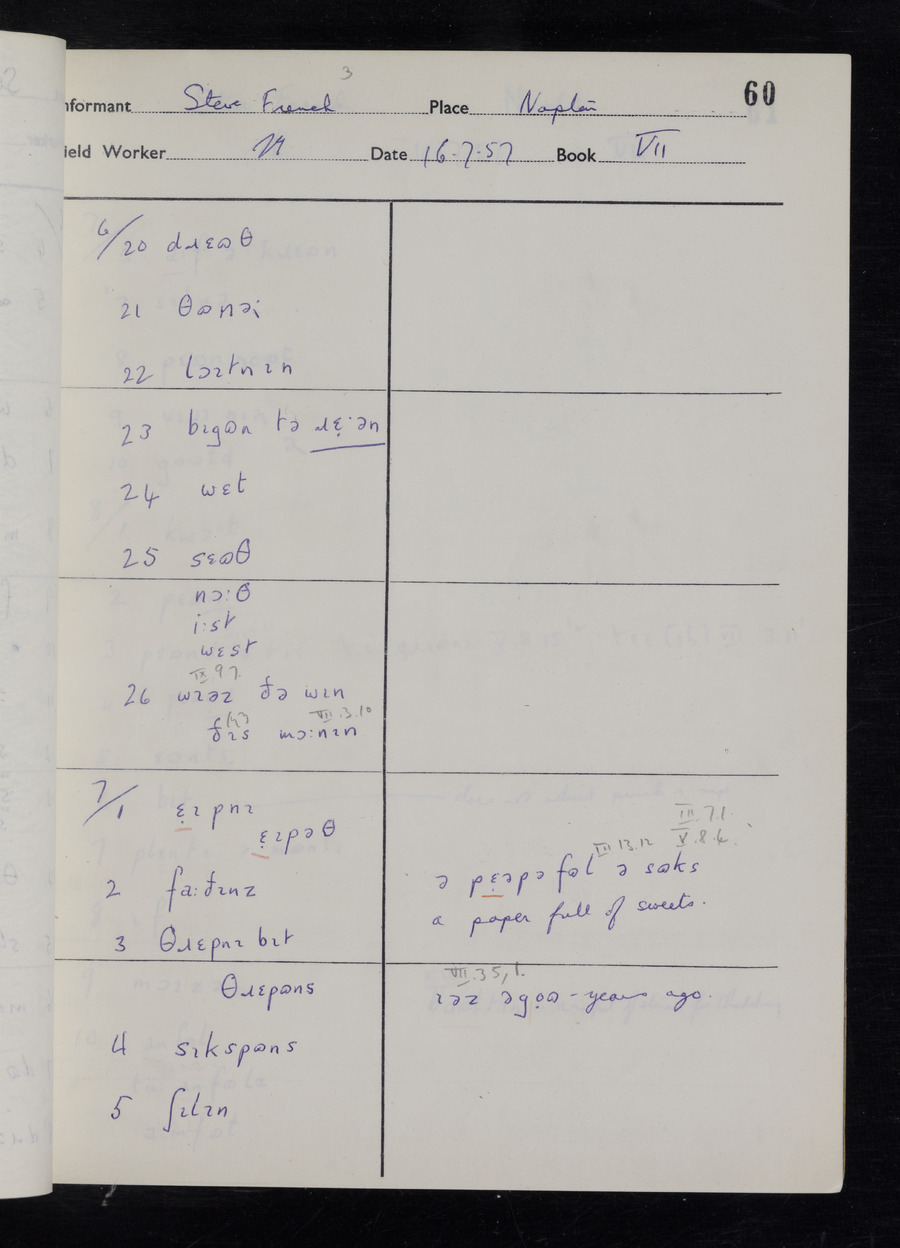 3
60
nformant Steve French Place Napton
ield Worker Date 16·7·57 Book VII
6/20 dɹɛɷθ
21 θɷnəi
22 lɔɪtnɪn
23 bɪgɷn tə ɹɛ̣ˑən
24 wɛt
25 sɛɷθ
nɔ:θ
i:st
wɛst
IX 9 7.
26 wɪəz ðə wɪn
VII.3.10
ðɪs mɔ:nɪn
7/1 ɛ̣ɪpnɪ
ɛ̣ɪpəθ
2 fa:ðɪnz
III.7.1.
III 13.12 V.8.4.
ə pɛ̣əpə fɷl ə sɷks
a paper full of sweets.
3 θɹɛpnɪ bɪt
θɹɛpɷns
VII.35,1.
ɪəz əgọɷ - years ago.
4 sɪkspɷns
5 ʃɪlɪn